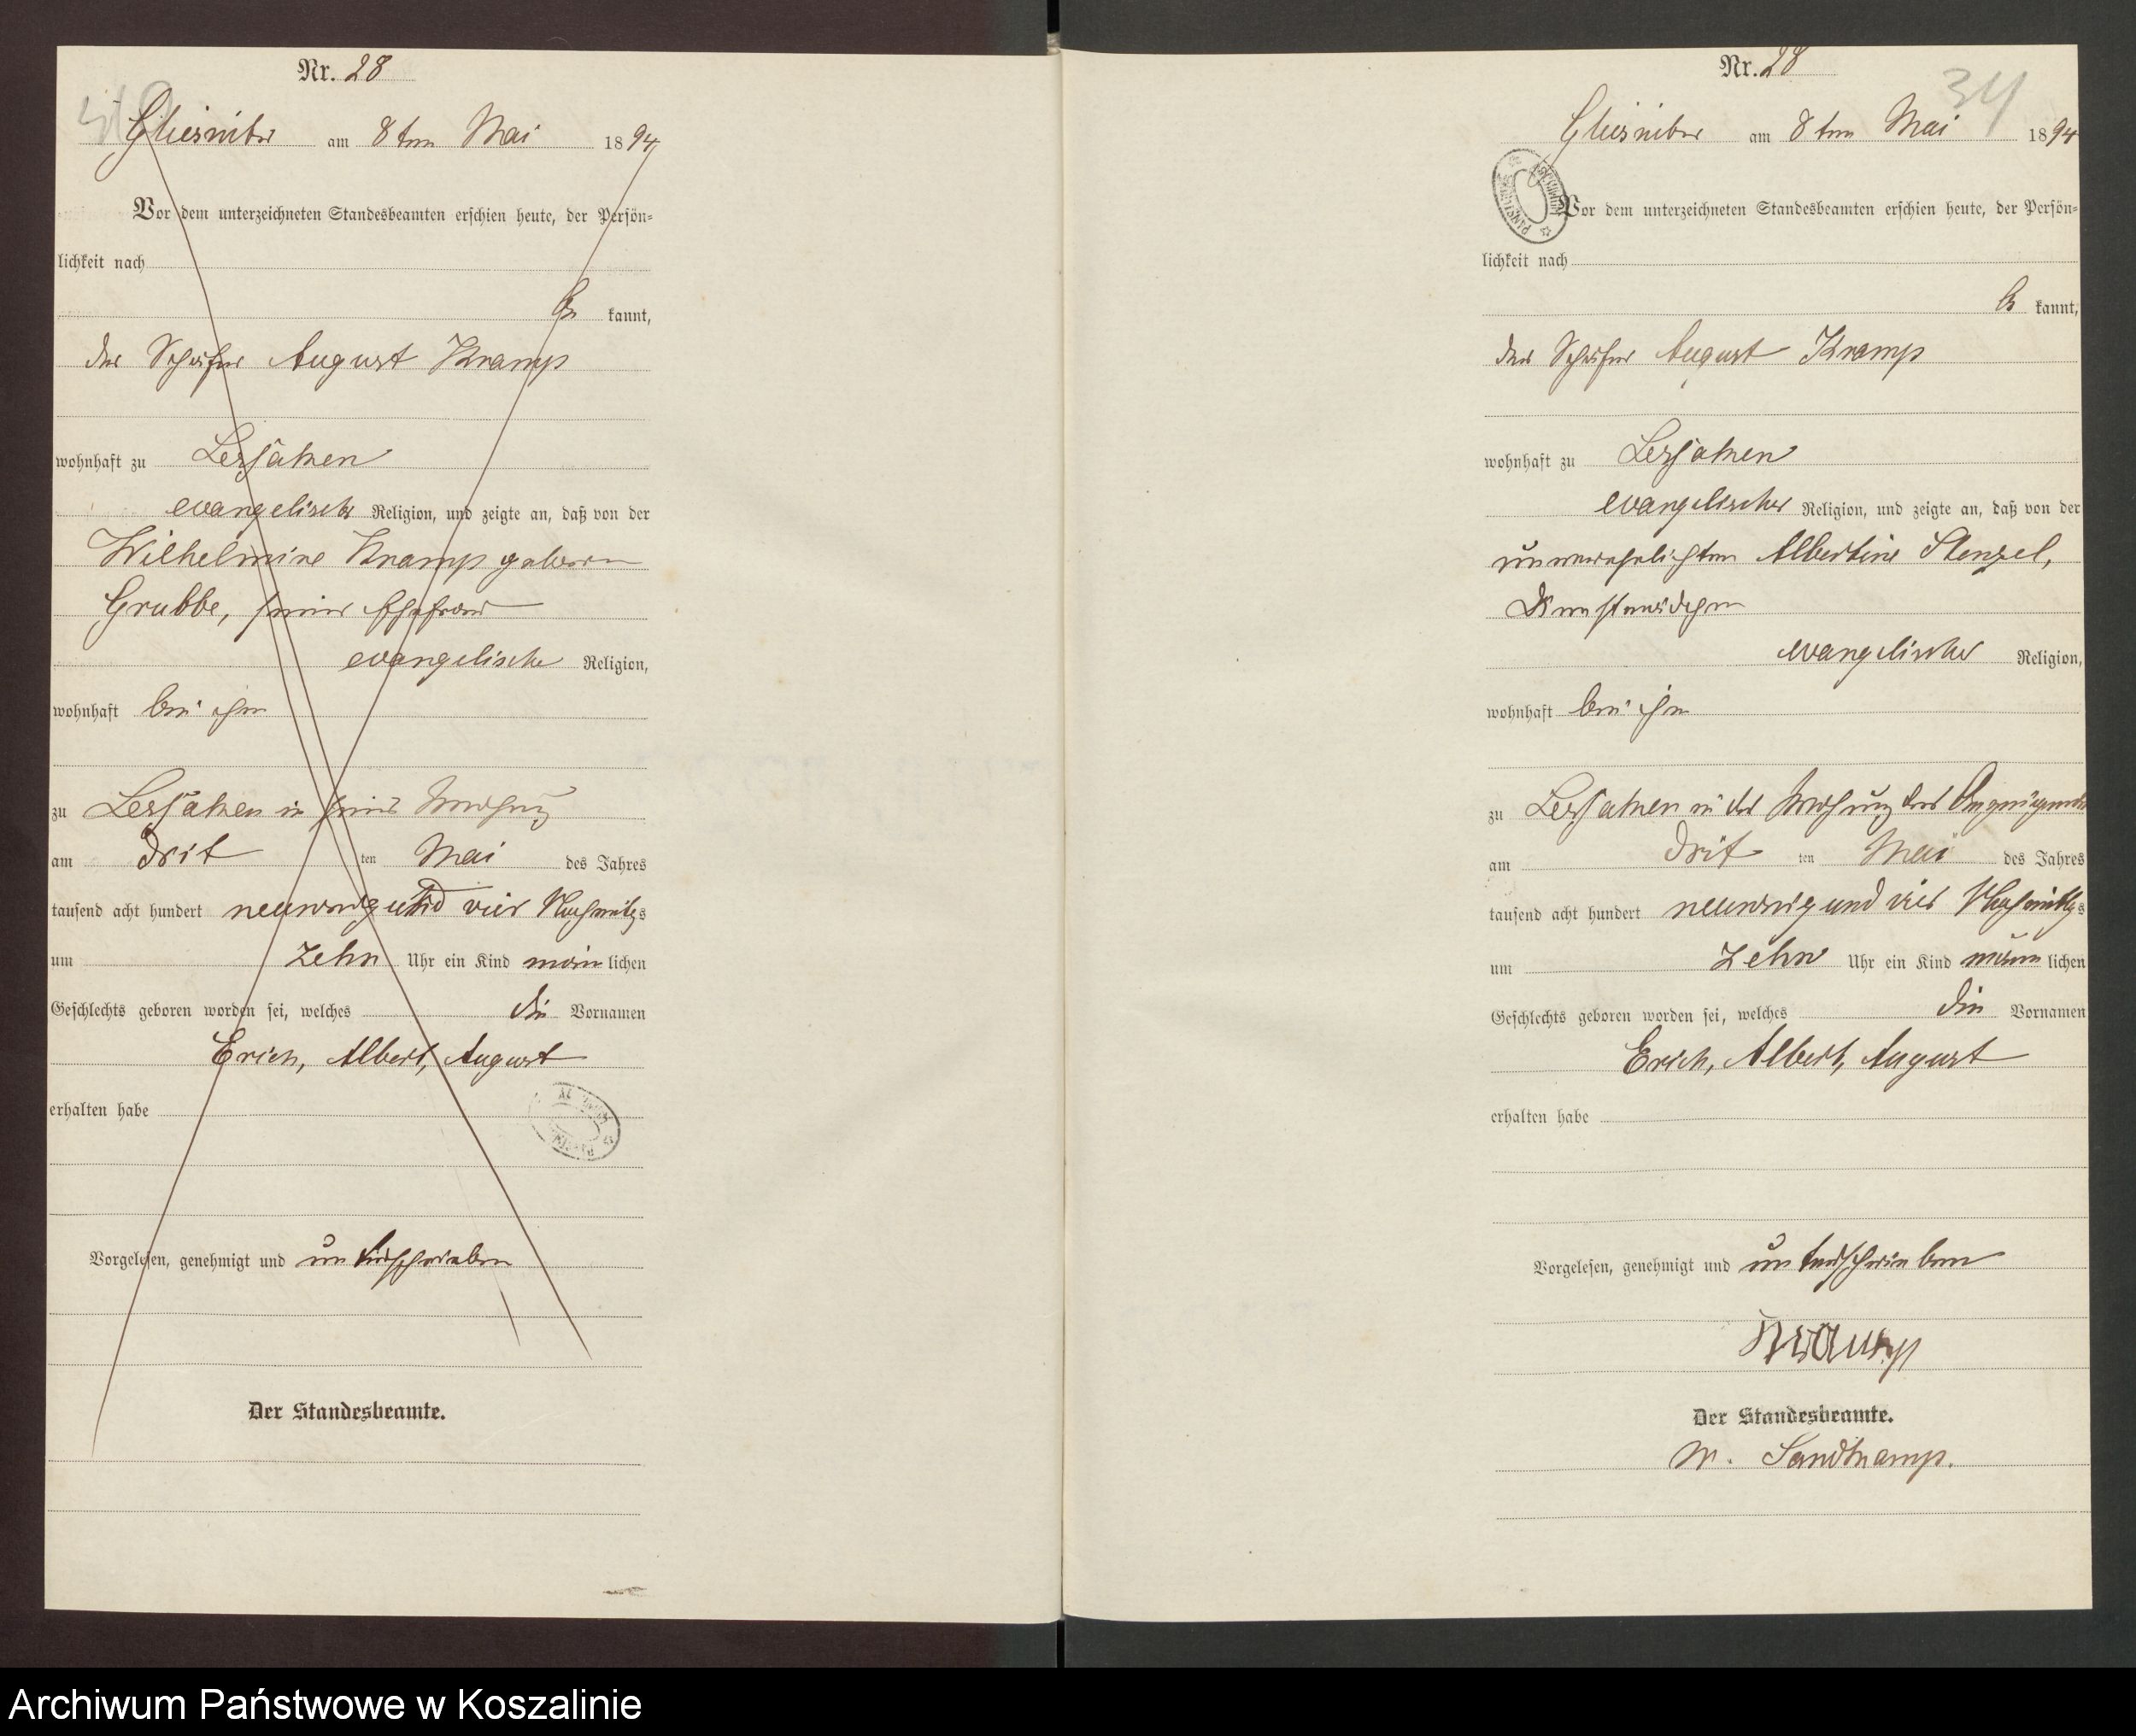 Nr. 28
Gliesnitz am 8ten Mai 1894
Vor dem unterzeichneten Standesbeamten erschien heute, der Persön-
lichkeit nach
be kannt,
der Schäfer August Kramp
wohnhaft zu
evangelischer Religion, und zeigte an, daß von der
Wilhelmine Kramp geboren
Grubbe, seiner Ehefrau
evangelische Religion,
wohnhaft bei ihm
zu in seiner Wohnung
am dritten Mai des Jahres
tausend acht hundert neunzig und vier Nachmittags
um zehn Uhr ein Kind männlichen
Geschlechts geboren worden sei, welches die Vornamen
Erich, Albert, August
erhalten habe
Vorgelesen, genehmigt und unterschrieben
Der Standesbeamte.
Nr. 28
34
Gliesnitz am 8ten Mai 1894
Vor dem unterzeichneten Standesbeamten erschien heute, der Persön-
lichkeit nach
be kannt,
der Schäfer August Kramp
wohnhaft zu
evangelischer Religion, und zeigte an, daß von der
unverehelichten Albertine Stenzel,
Dienstmädchen
evangelischer Religion,
wohnhaft bei ihm
zu in der Wohnung des Anzeigenden
am dritten Mai des Jahres
tausend acht hundert neunzig und vier Nachmittags
um zehn Uhr ein Kind männlichen
Geschlechts geboren worden sei, welches die Vornamen
Erich, Albert, August
erhalten habe
Vorgelesen, genehmigt und unterschrieben
Kramp
Der Standesbeamte.
Sandkamp.
Archiwum Państwowe w Koszalinie